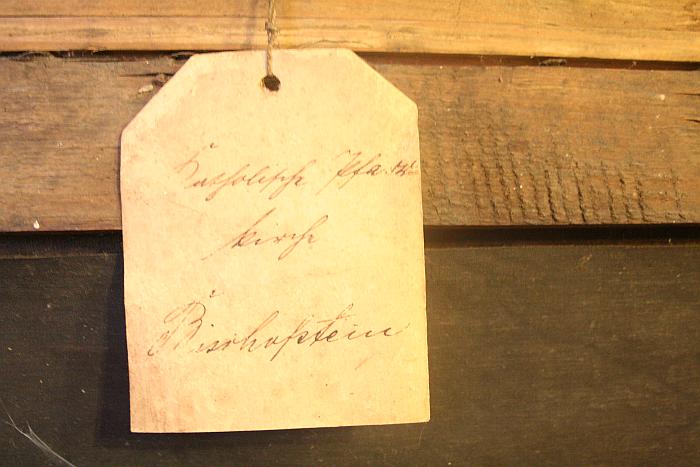 Katholische Pfarr
kirche
Bischofstein